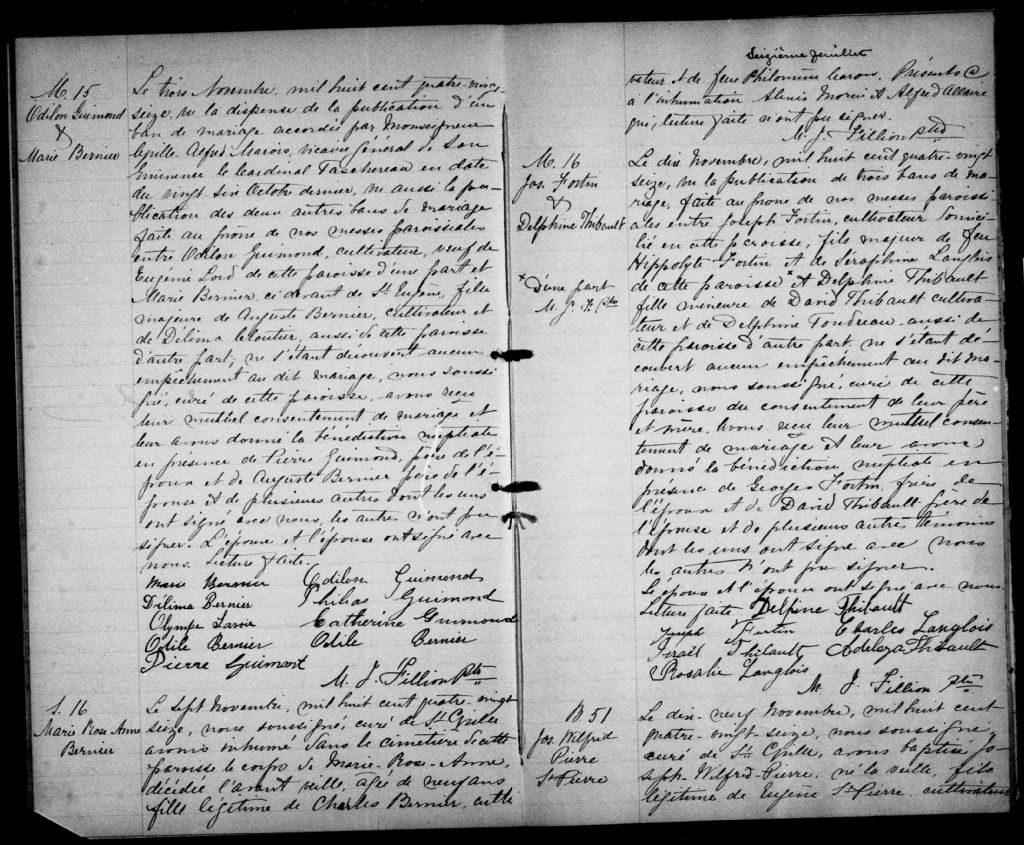 M. 15
Odilon Guimond
&
Marie Bernier
Le trois Novembre, mil huit cent quatre-vingt
seize, vu la dispense de la publication d'un
ban de mariage accordée par Monseigneur
Cyrille Alfred Marois, vicaire général de Son
Eminence le Cardinal Taschereau en date
du vingt six Octobre dernier, vu aussi la pu-
blication des deux autres bans de mariage
faite au prône de nos messes paroissiales
entre Odilon Guimond, cultivateur, veuf de
Eugénie Lord de cette paroisse d'une part et
Marie Bernier, ci devant de St Eugène, fille
majeure de Auguste Bernier, cultivateur et
de Délima Cloutier, aussi de cette paroisse
d'autre part; ne s'étant découvert aucun
empêchement au dit mariage, nous soussi
gné, curé de cette paroisse, avons reçu
leur mutuel consentement de mariage et
leur avons donné la bénédiction nuptiale
en présence de Pierre Guimond, père de l'é-
poux et de Auguste Bernier père de l'é-
pouse et de plusieurs autres dont les uns
ont signé avec nous, les autres n'ont pu
signer. L'époux et l'épouse ont signé avec
nous. Lecture faite.
Marie Bernier Odilon Guimond
Délima Bernier Philias Guimond
Olympe Lavoie Catherine Guimond
Odile Bernier Odile Bernier
Pierre Guimont
M. J. Fillion Ptre
S. 16
Marie Rose Anne
Bernier
Le sept Novembre, mil huit cent quatre-vingt
seize, nous soussigné, curé de St Cyrille
avons inhumé dans le cimetière de cette
paroisse le corps de Marie-Rose-Anne,
décédée l'avant veille, agée de neuf ans
fille légitime de Charles Bernier, culti
Seizième feuillet
vateur et de feue Philomène Caron. Présents
à l'inhumation Alexis Morin et Alfred Allaire
qui, lecture faite n'ont pu signer.
M. J. Fillion Ptre
M. 16
Jos. Fortin
&
Delphine Thibault
x d'une part
M. J. F. Ptre
Le dix Novembre, mil huit cent quatre-vingt
seize, vu la publication de trois bans de ma-
riage, faite au prône de nos messes paroissi-
ales entre Joseph Fortin, cultivateur domici-
lié en cette paroisse, fils majeur de feu
Hippolyte Fortin et de Séraphine Langlois
de cette paroisse x et Delphine Thibault
fille mineure de David Thibault cultiva-
teur et de Delphine Fondreau aussi de
cette paroisse d'autre part. ne s'étant dé-
couvert aucun empêchement au dit ma-
riage, nous soussigné, curé de cette
paroisse du consentement de leur père
et mère, avons reçu leur mutuel consen-
tement de mariage et leur avons
donné la bénédiction nuptiale en
présence de Georges Fortin frère de
l'époux et de David Thibault frère de
l'épouse et de plusieurs autres témoins
dont les uns ont signé avec nous
les autres n'ont pu signer.
L'époux et l'épouse ont signé avec nous
Lecture faite Delfine Thibault
Joseph Fortin Charles Langlois
Israël Thibault Adelaza Thibault
Rosalie Langlois
M. J. Fillion Ptre
B 51
Jos. Wilfrid
Pierre
St Pierre
Le dix-neuf Novembre, mil huit cent
quatre-vingt-seize, nous soussigné,
curé de St Cyrille, avons baptisé Jo-
seph-Wilfrid-Pierre, né la veille, fils
légitime de Eugène St Pierre, cultivateur